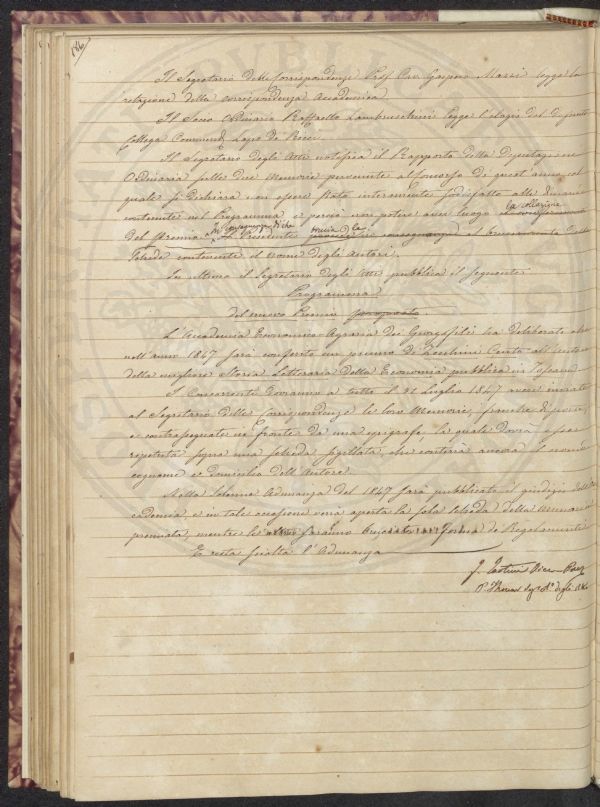 186
Il Segretario delle Corrispondenze Prof. Cav. Gaspero Mazzi legge la
relazione della corrispondenza Accademica.
Il Socio Ordinario Raffaello Lambruschini legge l'elogio del Defunto
Collega Commend. Lapo de Ricci.
Il Segretario degli Atti notifica il Rapporto della Deputazione
Ordinaria sulle due Memorie pervenute al Concorso di quest'anno, col
quale si dichiara non essere stato interamente sodisfatto alle
contenute nel Programma e perciò non potere aver luogo la collazione
del Premio. In conseguenza di che il Presidente brucia la
Scheda contenente il nome degli Autori.
In ultimo il Segretario degli Atti pubblica il seguente
Programma
del nuovo Premio proposto.
L'Accademia Economico-Agraria dei Georgofili ha deliberato che
nell'anno 1847 sarà conferito un premio di Zecchini Cento all'autore
della migliore Storia Letteraria della Economia pubblica in Toscana.
I Concorrenti dovranno a tutto il 31 Luglio 1847 avere inviato
al Segretario delle Corrispondenze le loro Memorie, franche di porto,
e contrassegnate in fronte da una epigrafe, la quale dovrà esser
repetuta sopra una scheda sigillata, che conterrà ancora il nome
cognome e domicilio dell'Autore.
Nella Solenne Adunanza del 1847 sarà pubblicato il giudizio dell'Ac
cademia, e in tale occasione verrà aperta la sola Scheda della Memoria
premiata, mentre le altre saranno bruciate in forma di Regolamento.
E resta sciolta l'Adunanza
Vice-Pres.
degli Atti